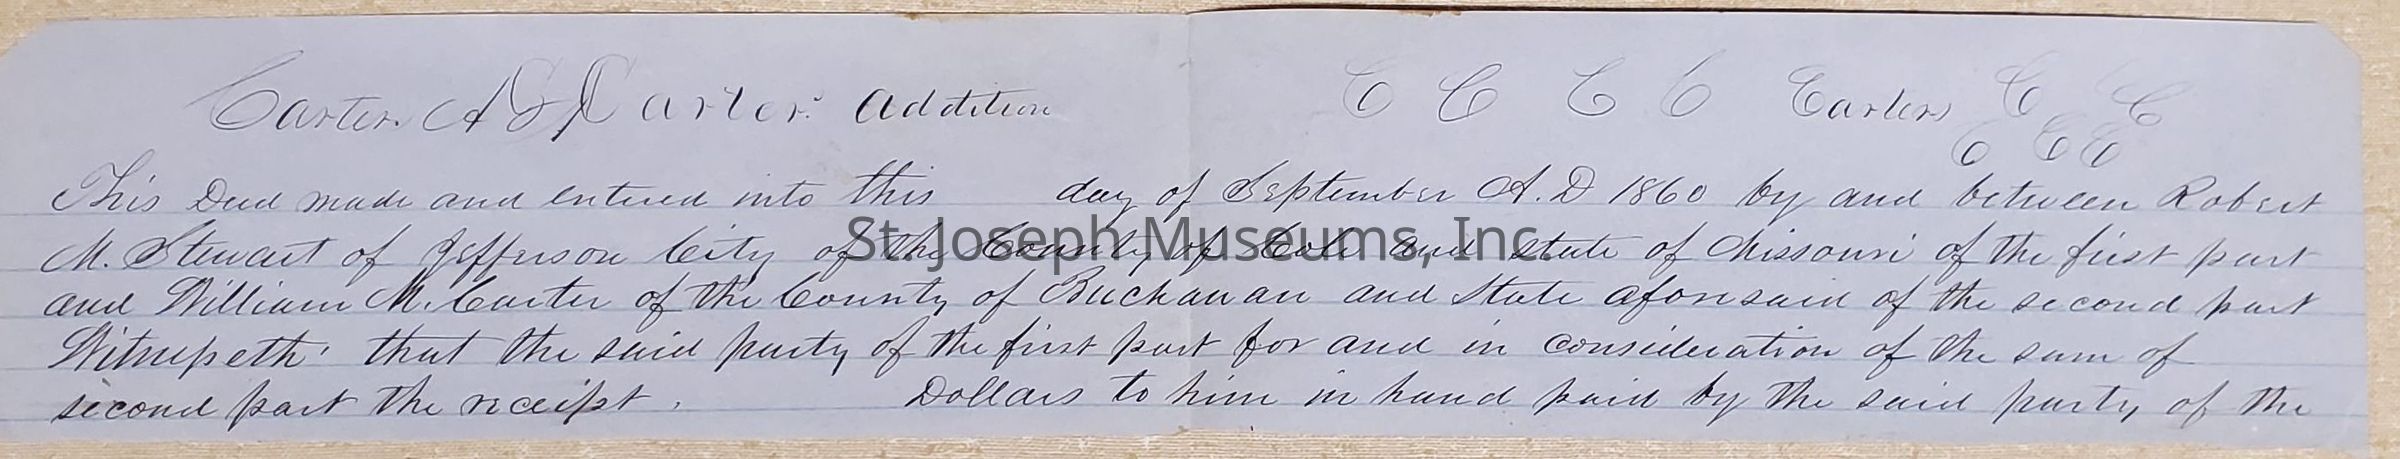 Carter. A S Carter's Addition C C C C Carters C C
C C C
This Deed made and entered into this day of September A. D 1860 by and between Robert
M. Stewart of Jefferson City of the County of Cole and State of Missouri of the first part
and William M. Carter of the County of Buchanan and State aforesaid of the second part
Witnesseth that the said party of the first part for and in consideration of the sum of
second part the receipt. Dollars to him in hand paid by the said party of the
St. Joseph Museums, Inc.